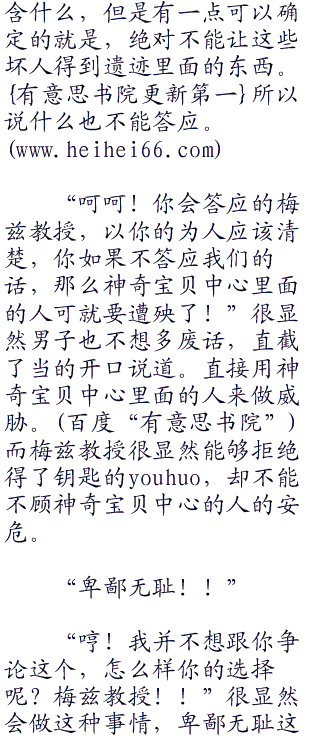 含什么，但是有一点可以确
定的就是，绝对不能让这些
坏人得到遗迹里面的东西。
{有意思书院更新第一}所以
说什么也不能答应。
(www.heihei66.com)
“呵呵！你会答应的梅
兹教授，以你的为人应该清
楚，你如果不答应我们的
话，那么神奇宝贝中心里面
的人可就要遭殃了！”很显
然男子也不想多废话，直截
了当的开口说道。直接用神
奇宝贝中心里面的人来做威
胁。(百度“有意思书院”)
而梅兹教授很显然能够拒绝
得了钥匙的youhuo，却不能
不顾神奇宝贝中心的人的安
危。
“卑鄙无耻！！”
“哼！我并不想跟你争
论这个，怎么样你的选择
呢？梅兹教授！！”很显然
会做这种事情，卑鄙无耻这